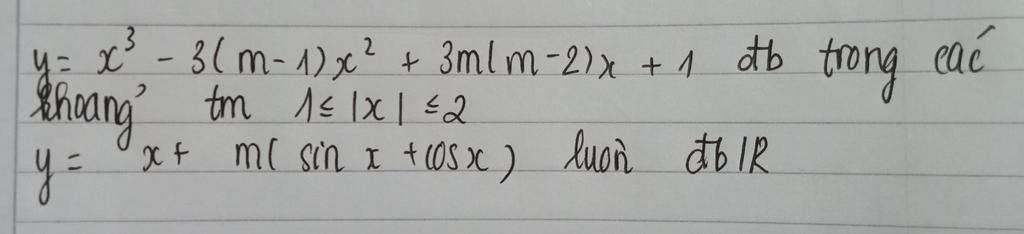 y = x³ - 3(m-1)x² + 3m(m-2)x + 1 đb trong các
khoảng tm 1 ≤ |x| ≤ 2
y = x + m(sin x + cosx) luôn đb IR